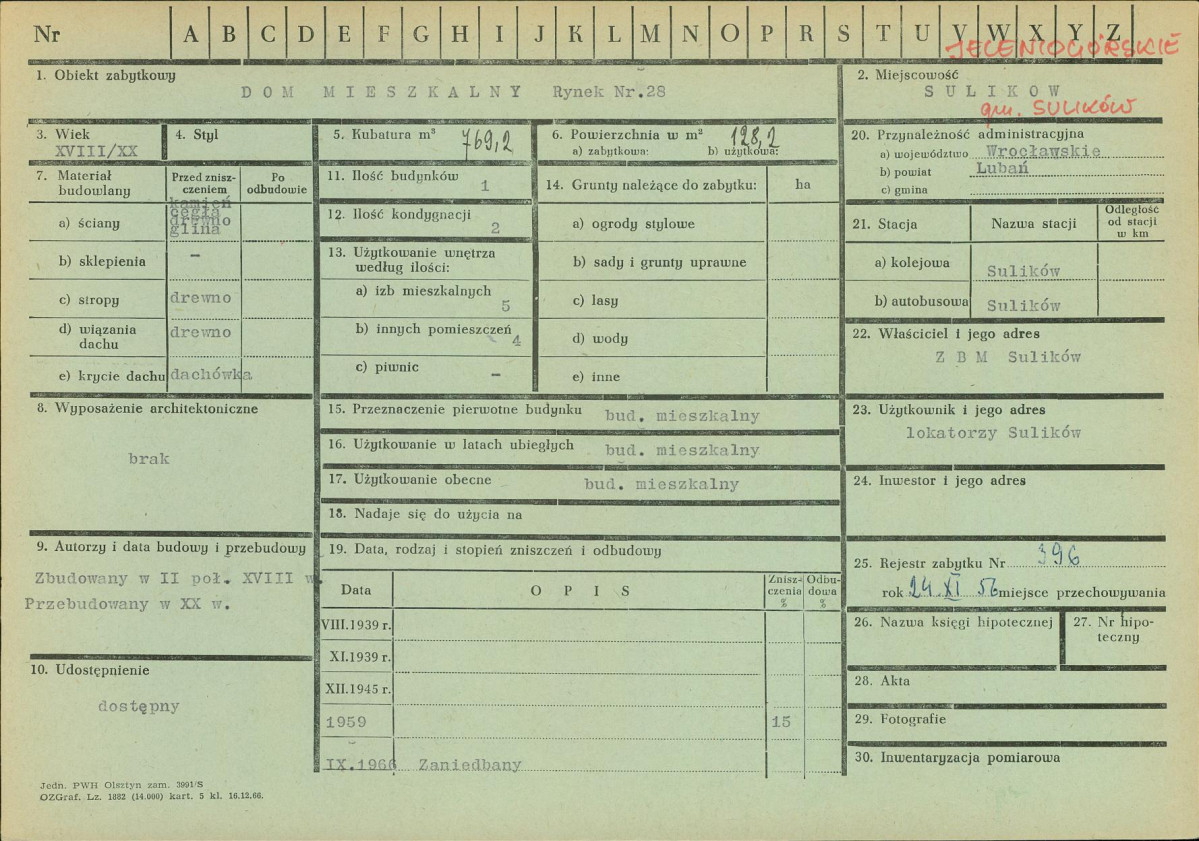 Nr A B C D E F G H I J K L M N O P R S T U V W X Y Z
JELENIOGÓRSKIE
1. Obiekt zabytkowy
DOM MIESZKALNY Rynek Nr.28
2. Miejscowość
SULIKOW
gm. SULIKÓW
3. Wiek
XVIII/XX
4. Styl
5. Kubatura m³ 769,2
6. Powierzchnia w m² 128,2
a) zabytkowa: b) użytkowa:
7. Materiał budowlany
Przed zniszczeniem
Po odbudowie
a) ściany
kamień
cegła
drewno
glina
b) sklepienia –
c) stropy drewno
d) wiązania dachu drewno
e) krycie dachu dachówka
8. Wyposażenie architektoniczne
brak
9. Autorzy i data budowy i przebudowy
Zbudowany w II poł. XVIII w.
Przebudowany w XX w.
10. Udostępnienie
dostępny
11. Ilość budynków 1
12. Ilość kondygnacji 2
13. Użytkowanie wnętrza
według ilości:
a) izb mieszkalnych 5
b) innych pomieszczeń 4
c) piwnic –
14. Grunty należące do zabytku: ha
a) ogrody stylowe
b) sady i grunty uprawne
c) lasy
d) wody
e) inne
15. Przeznaczenie pierwotne budynku bud. mieszkalny
16. Użytkowanie w latach ubiegłych bud. mieszkalny
17. Użytkowanie obecne bud. mieszkalny
18. Nadaje się do użycia na
19. Data, rodzaj i stopień zniszczeń i odbudowy
Data OPIS Zniszczenia % Odbudowa %
VIII.1939 r.
XI.1939 r.
XII.1945 r.
1959 15
IX.1966 Zaniedbany
20. Przynależność administracyjna
a) województwo Wrocławskie
b) powiat Lubań
c) gmina
21. Stacja Nazwa stacji Odległość od stacji w km
a) kolejowa Sulików
b) autobusowa Sulików
22. Właściciel i jego adres
Z B M Sulików
23. Użytkownik i jego adres
lokatorzy Sulików
24. Inwestor i jego adres
25. Rejestr zabytku Nr 396
rok 24 XI 56 miejsce przechowywania
26. Nazwa księgi hipotecznej
27. Nr hipoteczny
28. Akta
29. Fotografie
30. Inwentaryzacja pomiarowa
Jedn. PWH Olsztyn zam. 3991/S
OZGraf. Lz. 1882 (14.000) kart. 5 kl. 16.12.66.